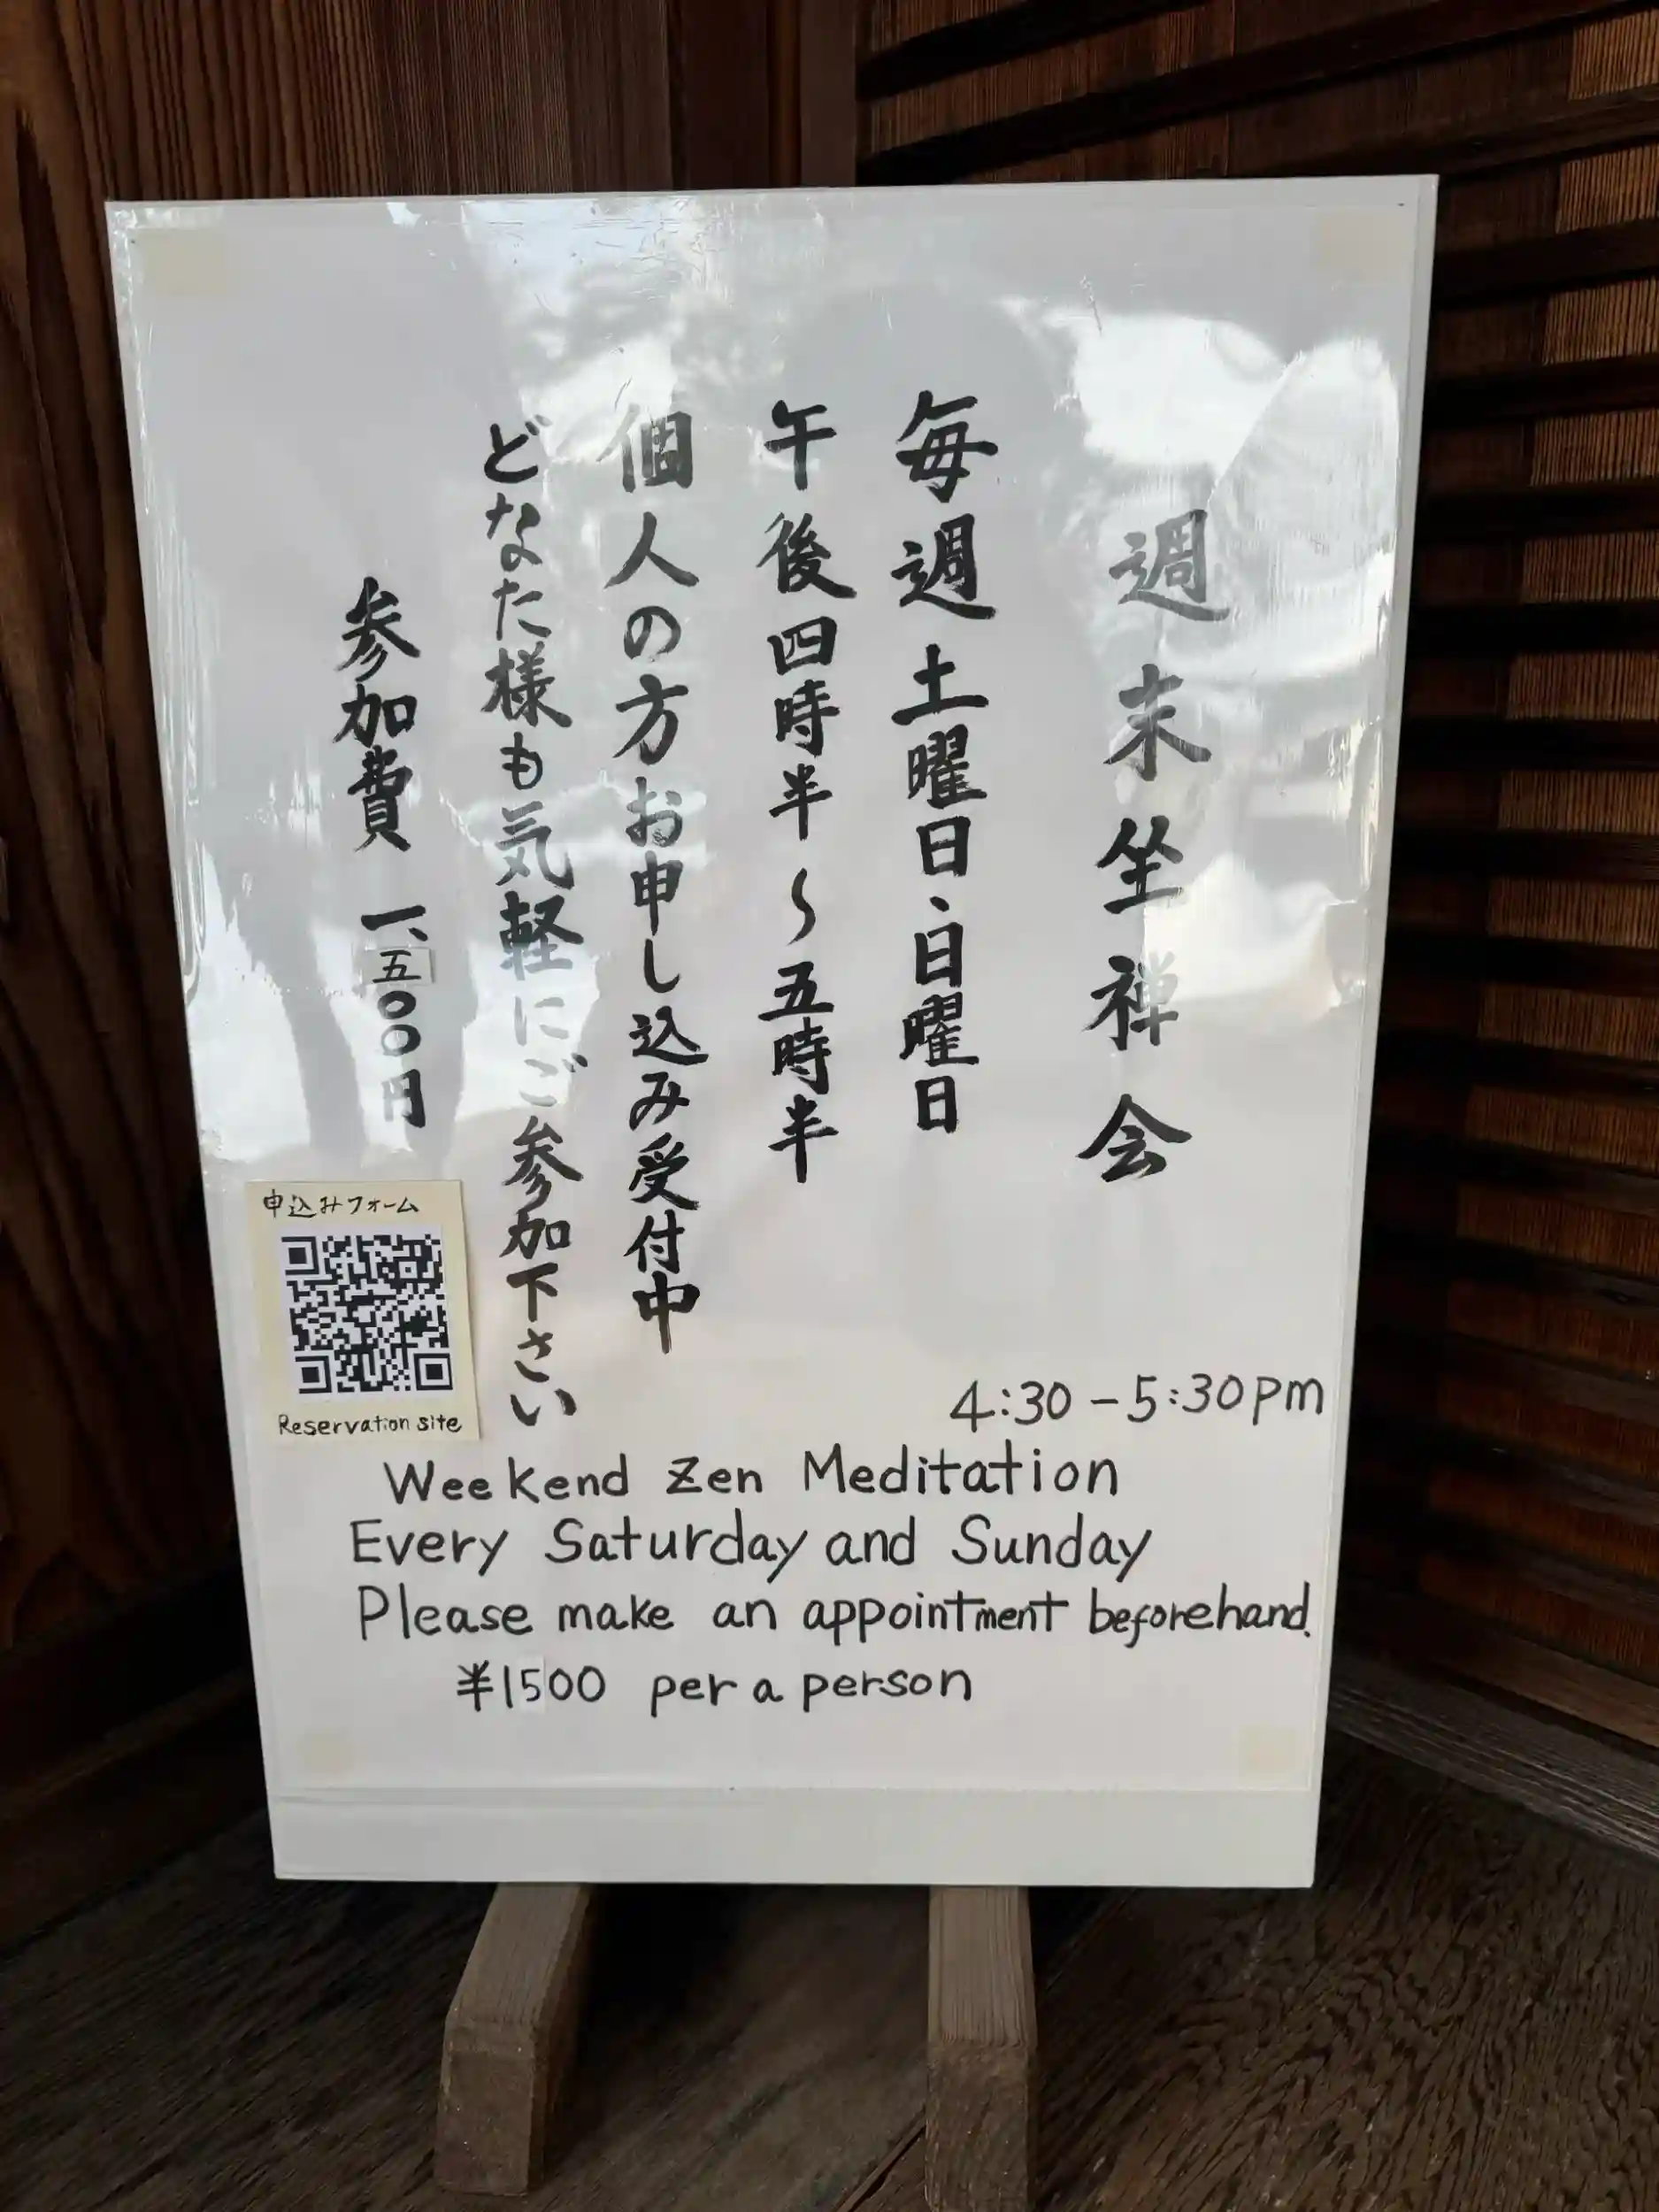 週末坐禅会
毎週土曜日・日曜日
午後四時半〜五時半
個人の方お申し込み受付中
どなた様も気軽にご参加下さい
参加費 一、五〇〇円
申込みフォーム
Reservation site
4:30-5:30pm
Weekend Zen Meditation
Every Saturday and Sunday
Please make an appointment beforehand.
¥1500 per a person